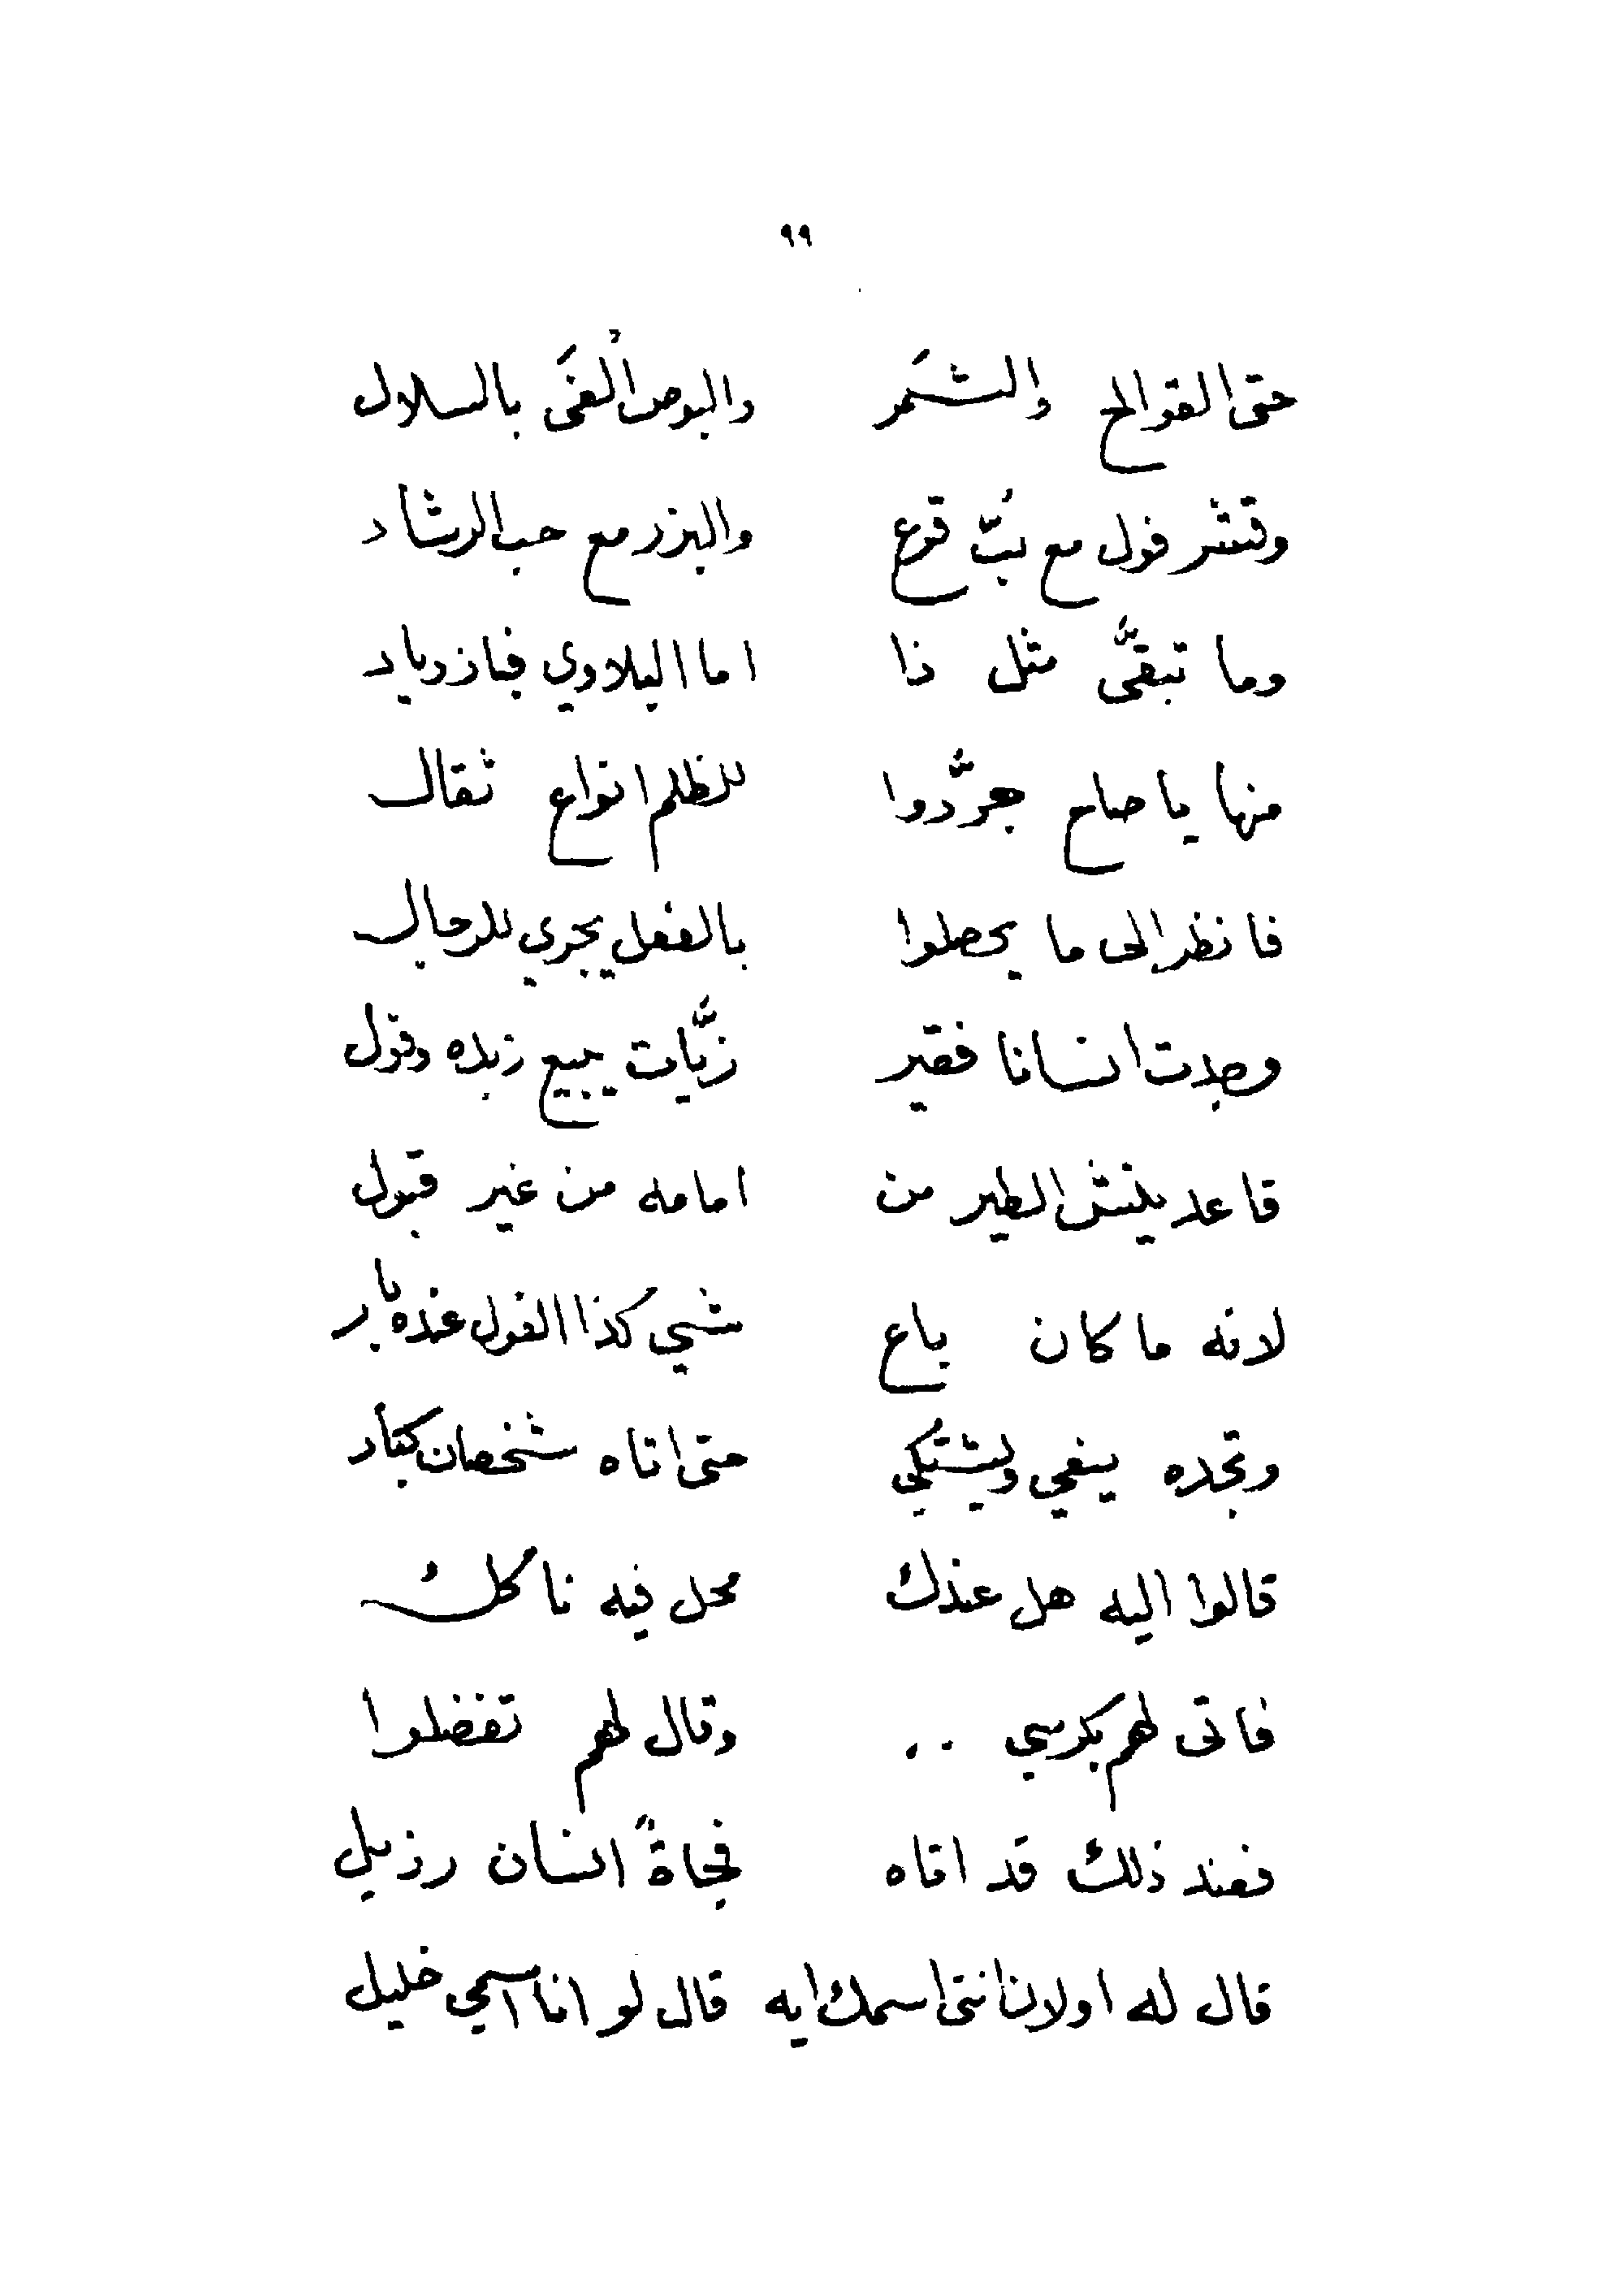 ٩٩
حتى القوالح والشَمر والبوص أُلغىَ بالسلال
وقشر فول مع بُبّ قرع والبزر مع حب الرشاد
وما تبقَّى مثل ذا اما البلاوي فبازدياد
منها يا صاح جرَّدوا للظلم انواع ثقال
فانظر الى ما يحصلوا بالفعل يجري للرجال
وجدت انسانا فقير زيَّات يبيع زبده وفول
قاعد ينش الطير من امامه من غير قبول
لانه ما كان باع شي كذا الفول عنده بار
وتجده ينعي ويشتكي حتى اتاه شخصان كبار
قالوا اليه هل عندك محل فيه ناكلُ
فاتى لهم بكرسي .. وقال لهم تفضلوا
فعند ذلك قد اتاه فجاةً انسان رزيل
قال له اولا ن انتى اسمك ايه قال لو انا اسمي خليل